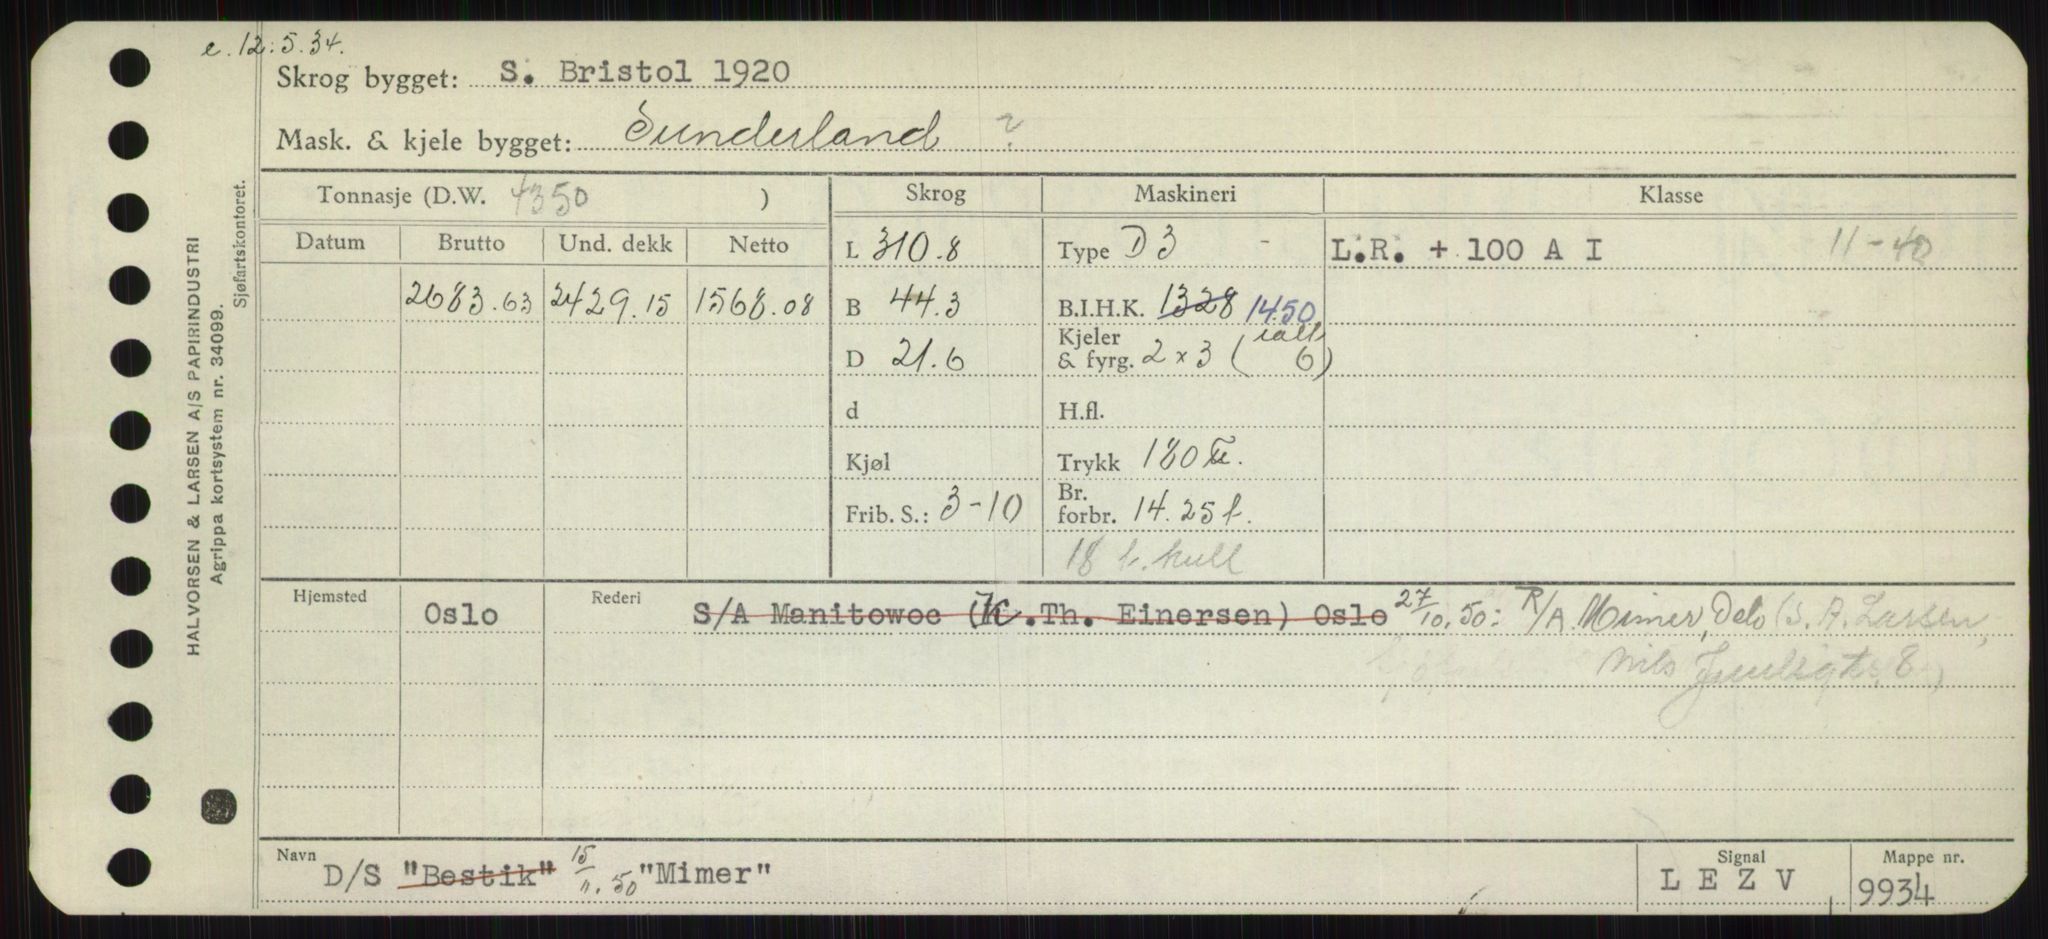 e. 12.5.34.
Skrog bygget: S. Bristol 1920
Mask. & kjele bygget: Sunderland ?
Tonnasje (D.W. 4350 ) Skrog Maskineri Klasse
Datum Brutto Und. dekk Netto L 310.8 Type D 3 - L.R. + 100 A I 11-40
2683.63 2429.15 1568.08 B 44.3 B.I.H.K. 1328 1450
D 21.6 Kjeler & fyrg. 2 x 3 (ialt 6)
d H.fl.
Kjøl Trykk 180
Frib. S.: 3-10 Br. forbr. 14.25 t.
18 t. kull
Hjemsted Oslo Rederi S/A Manitowoc (K.Th. Einersen) Oslo 27/10.50: R/A Mimer, Oslo (S. A. Larsen,
Nils
Navn D/S "Bestik" 15/11.50 "Mimer" Signal L E Z V Mappe nr. 9934
HALVORSEN & LARSEN A/S PAPIRINDUSTRI
Agrippa kortsystem nr. 34099.
Sjøfartskontoret.